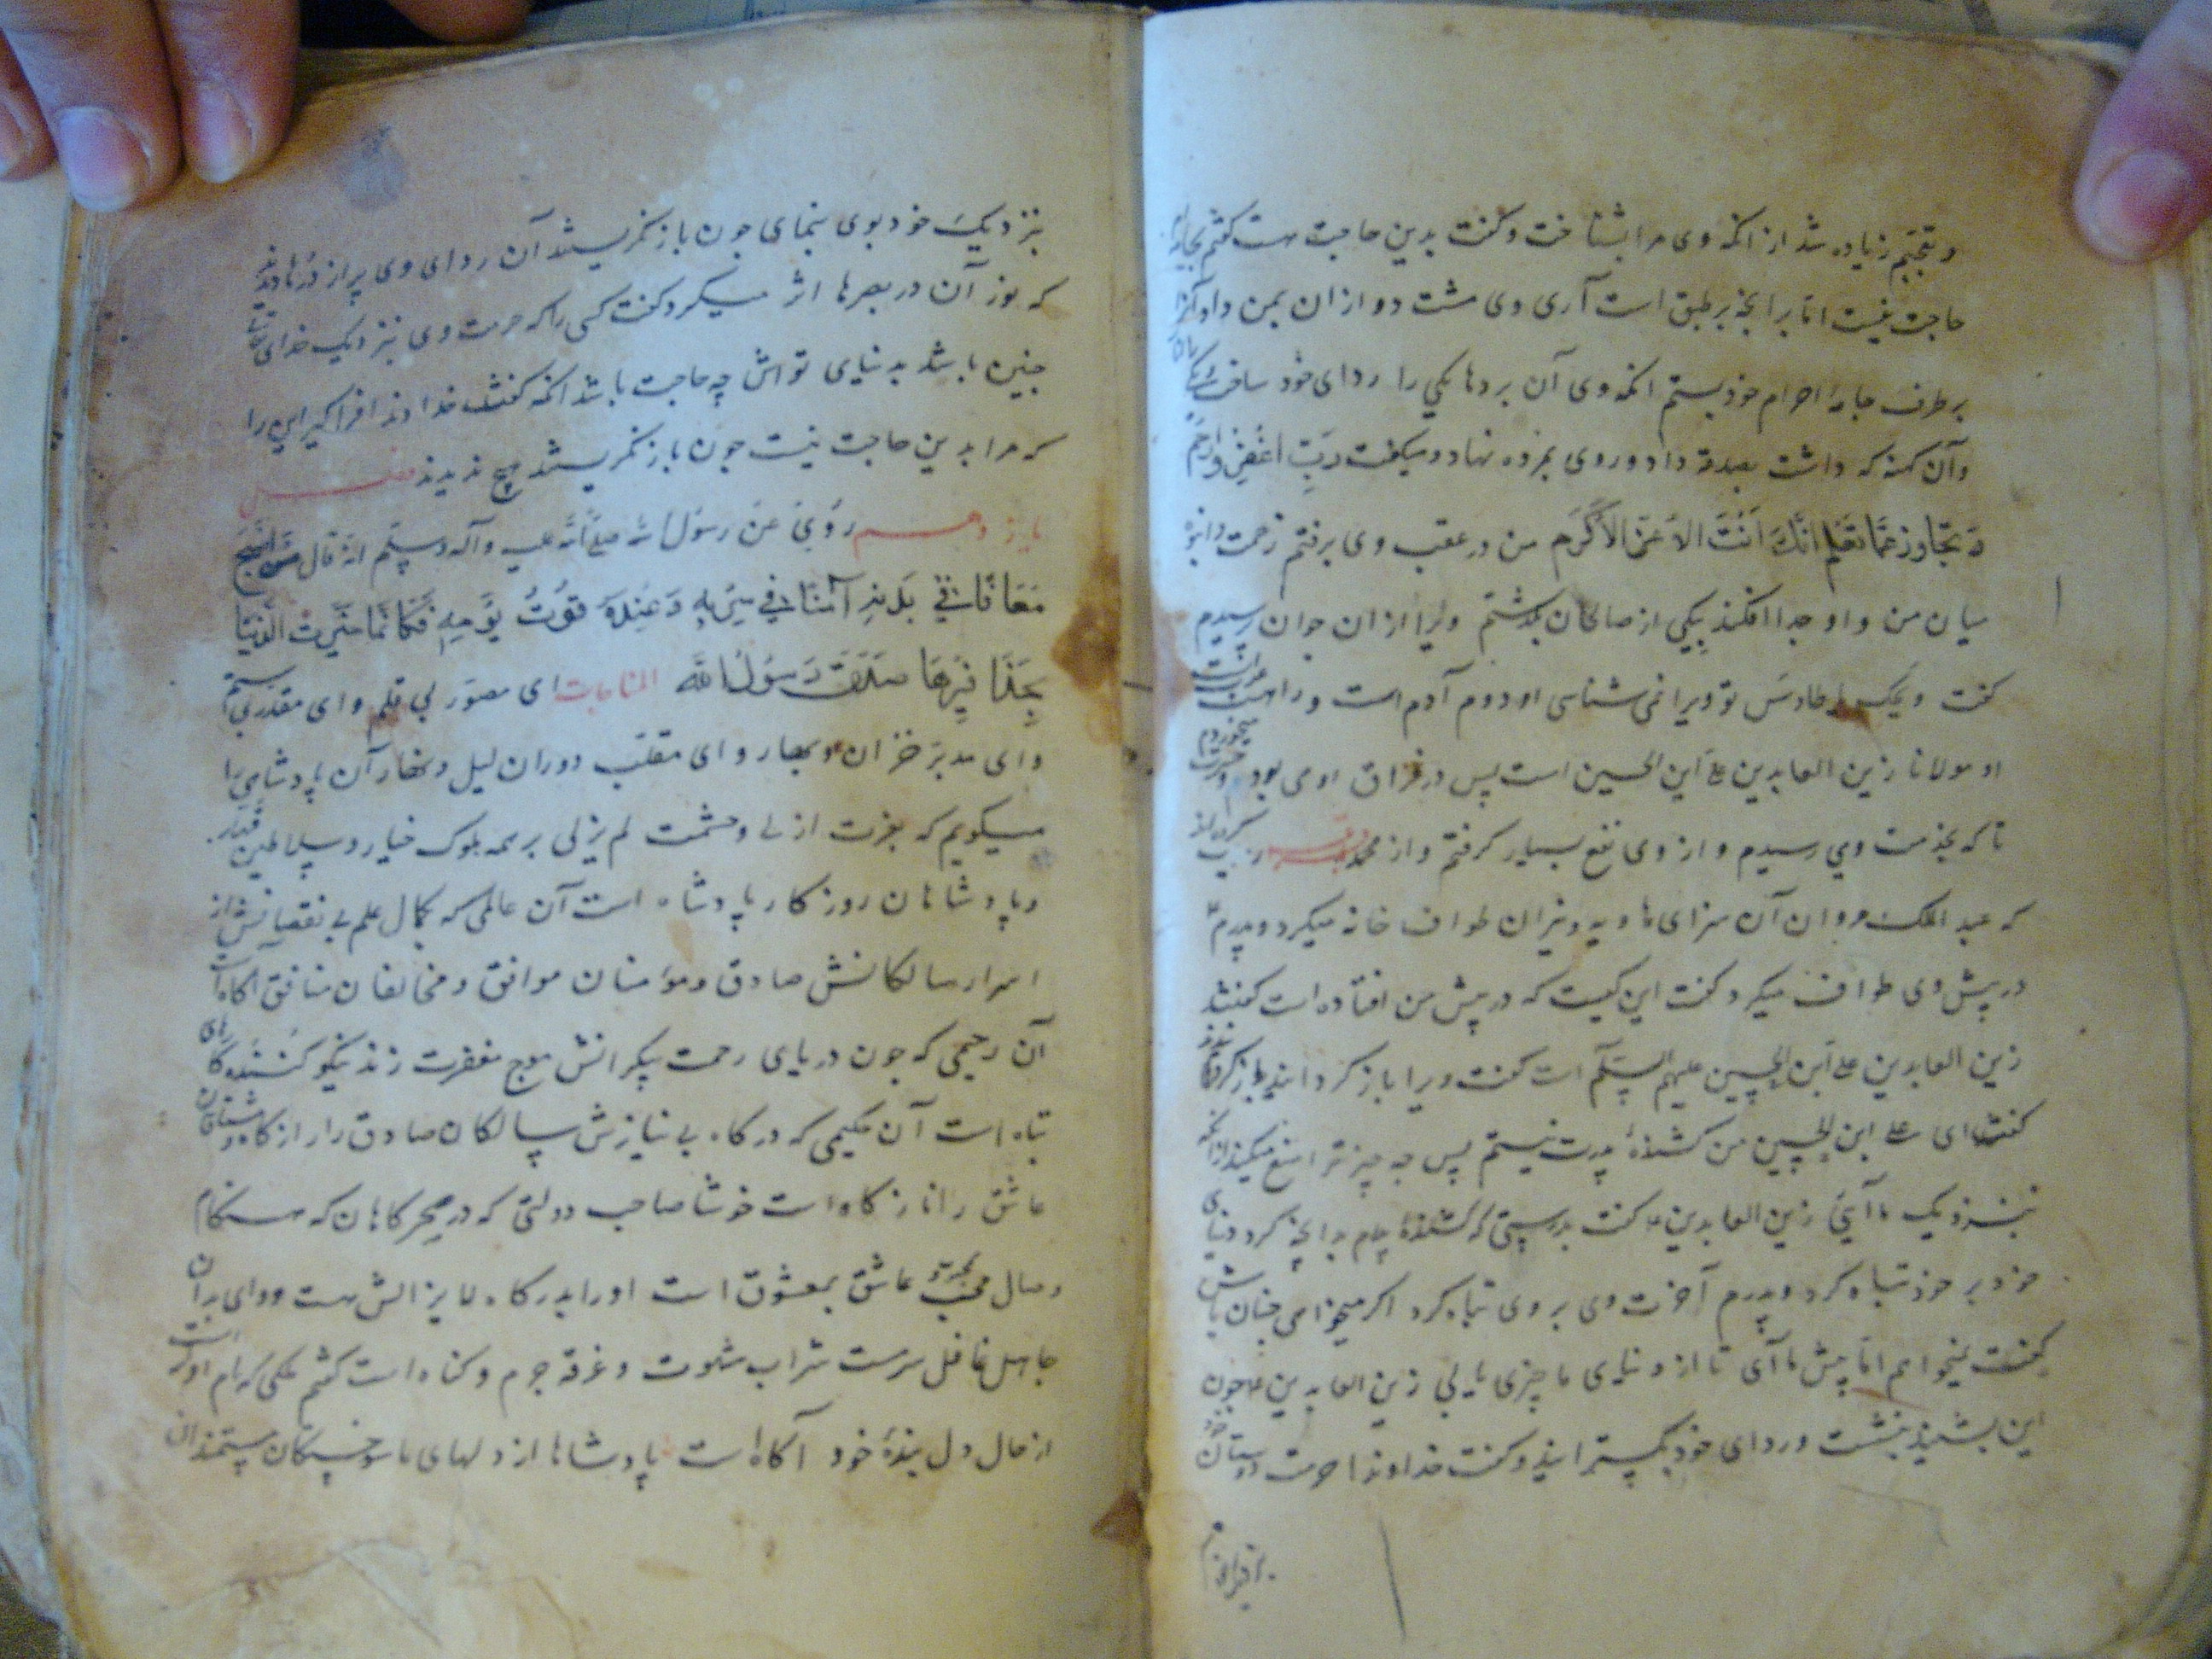 و تعجبم زیاده شد از انکه وی مرا بشناخت و کفت بدین حاجت هست کفتم بجامه
حاجت نیست اما برانچه بر طبق است آری وی مشت دو ازان بمن داد آنرا
بر طرف جامهٔ احرام خود بستم انکه وی آن بردها یکی را ردای خود ساخت
وآن کهنه که داشت بصدقه داد و روی بمروه نهاد و میکفت رَبِّ اغفِر وارحَم
وَ تجاوز عَمّا تَعلَم اِنَّکَ اَنتَ الاَعَزّ الاَکرَم من در عقب وی برفتم زحمت وانبوه
میان من واو جدا افکند بیکی از صالحان بکذشتم ویرا ازان جوان پرسیدم
کفت ویحک یا طاوس تو ویرا نمی شناسی او دوم آدم است و راهب
او مولانا زین العابدین علی ابن الحسین است پس در فراق او می بودم
تا که بخدمت وی رسیدم و از وی نفع بسیار کرفتم و از محمد
که عبد الملک مروان آن سزای هاویه ونیران طواف خانه میکرد و پدرم
در پیش وی طواف میکرد کفت این کیست که در پیش من افتاده است کفتند
زین العابدین علی ابن الحسین علیهم السلم است کفت ویرا باز کردانید
کفت ای علی ابن الحسین من کشندهٔ پدرت نیستم پس چه چیز ترا منع میکند ازانکه
بنزدیک ما آئی زین العابدین کفت بدرستی که کشندهٔ پدرم بدانچه کرد دنیای
خود بر خود تباه کرد و پدرم آخرت وی بر وی تباه کرد اکر میخواهی چنان باش
کفت نمیخواهم اما پیش ما آی تا از دنیای ما چیزی یابی زین العابدین چون
این بشنید بنشست و ردای خود بکسترانید و کفت خداوندا حرمت دوستان خود
نزدیک خود بوی بنمای چون باز نکریستند آن ردای وی پر از درها دیدند
که نور آن در بصرها اثر میکرد کفت کسی را که حرمت وی بنزدیک خدای تعالی
چنین باشد بدنیای تواش چه حاجت باشد انکه کفت خداوندا فرا کیر این را
که مرا بدین حاجت نیست چون باز نکریستند هیچ ندیدند فصل
یازدهم رُوِیَ عَن رسول الله صلی الله علیه وآله وسلم انه قال من اصبح
مُعَافًا فی بَدَنِهِ آمنًا فی سِربِهِ وَ عِندَهُ قُوتُ یَومِهِ فَکَاَنَّمَا خیرت الدنیا
بِحَذَافِیرِهَا صَدَقَ رَسُولُ اللّه المناجات ای مصور بی قلم و ای مقدر بی ستم
و ای مدبر خزان و بهار و ای مقلب دوران لیل و نهار آن پادشاهی را
میکویم که بعزت ازلی و حشمت لم یزلی بر همه ملوک خیار و سلاطین
و پادشاهان روزکار پادشاه است آن عالمی که بکمال علم بی نقصانش از
اسرار سالکانش صادق ومؤمنان موافق و مخالفان منافق آکاه است
آن رحیمی که چون دریای رحمت بیکرانش موج مغفرت زند نیکو کننده
تباه است آن حکیمی که درکاه بی نیازش سالکان صادق را رازکاه و مشتاقان
عاشق را نازکاه است خوشا صاحب دولتی که در سحرکاهان که هنکام
وصال محب بمحبوب و عاشق بمعشوق است او را بدرکاه لایزالش هست و وای بران
جاهل غافل سرمست شراب شهوت و غرقه جرم و کناه است
از حال دل بندهٔ خود آکاه است پادشاها از دلهای ما سوختکان مستمندان